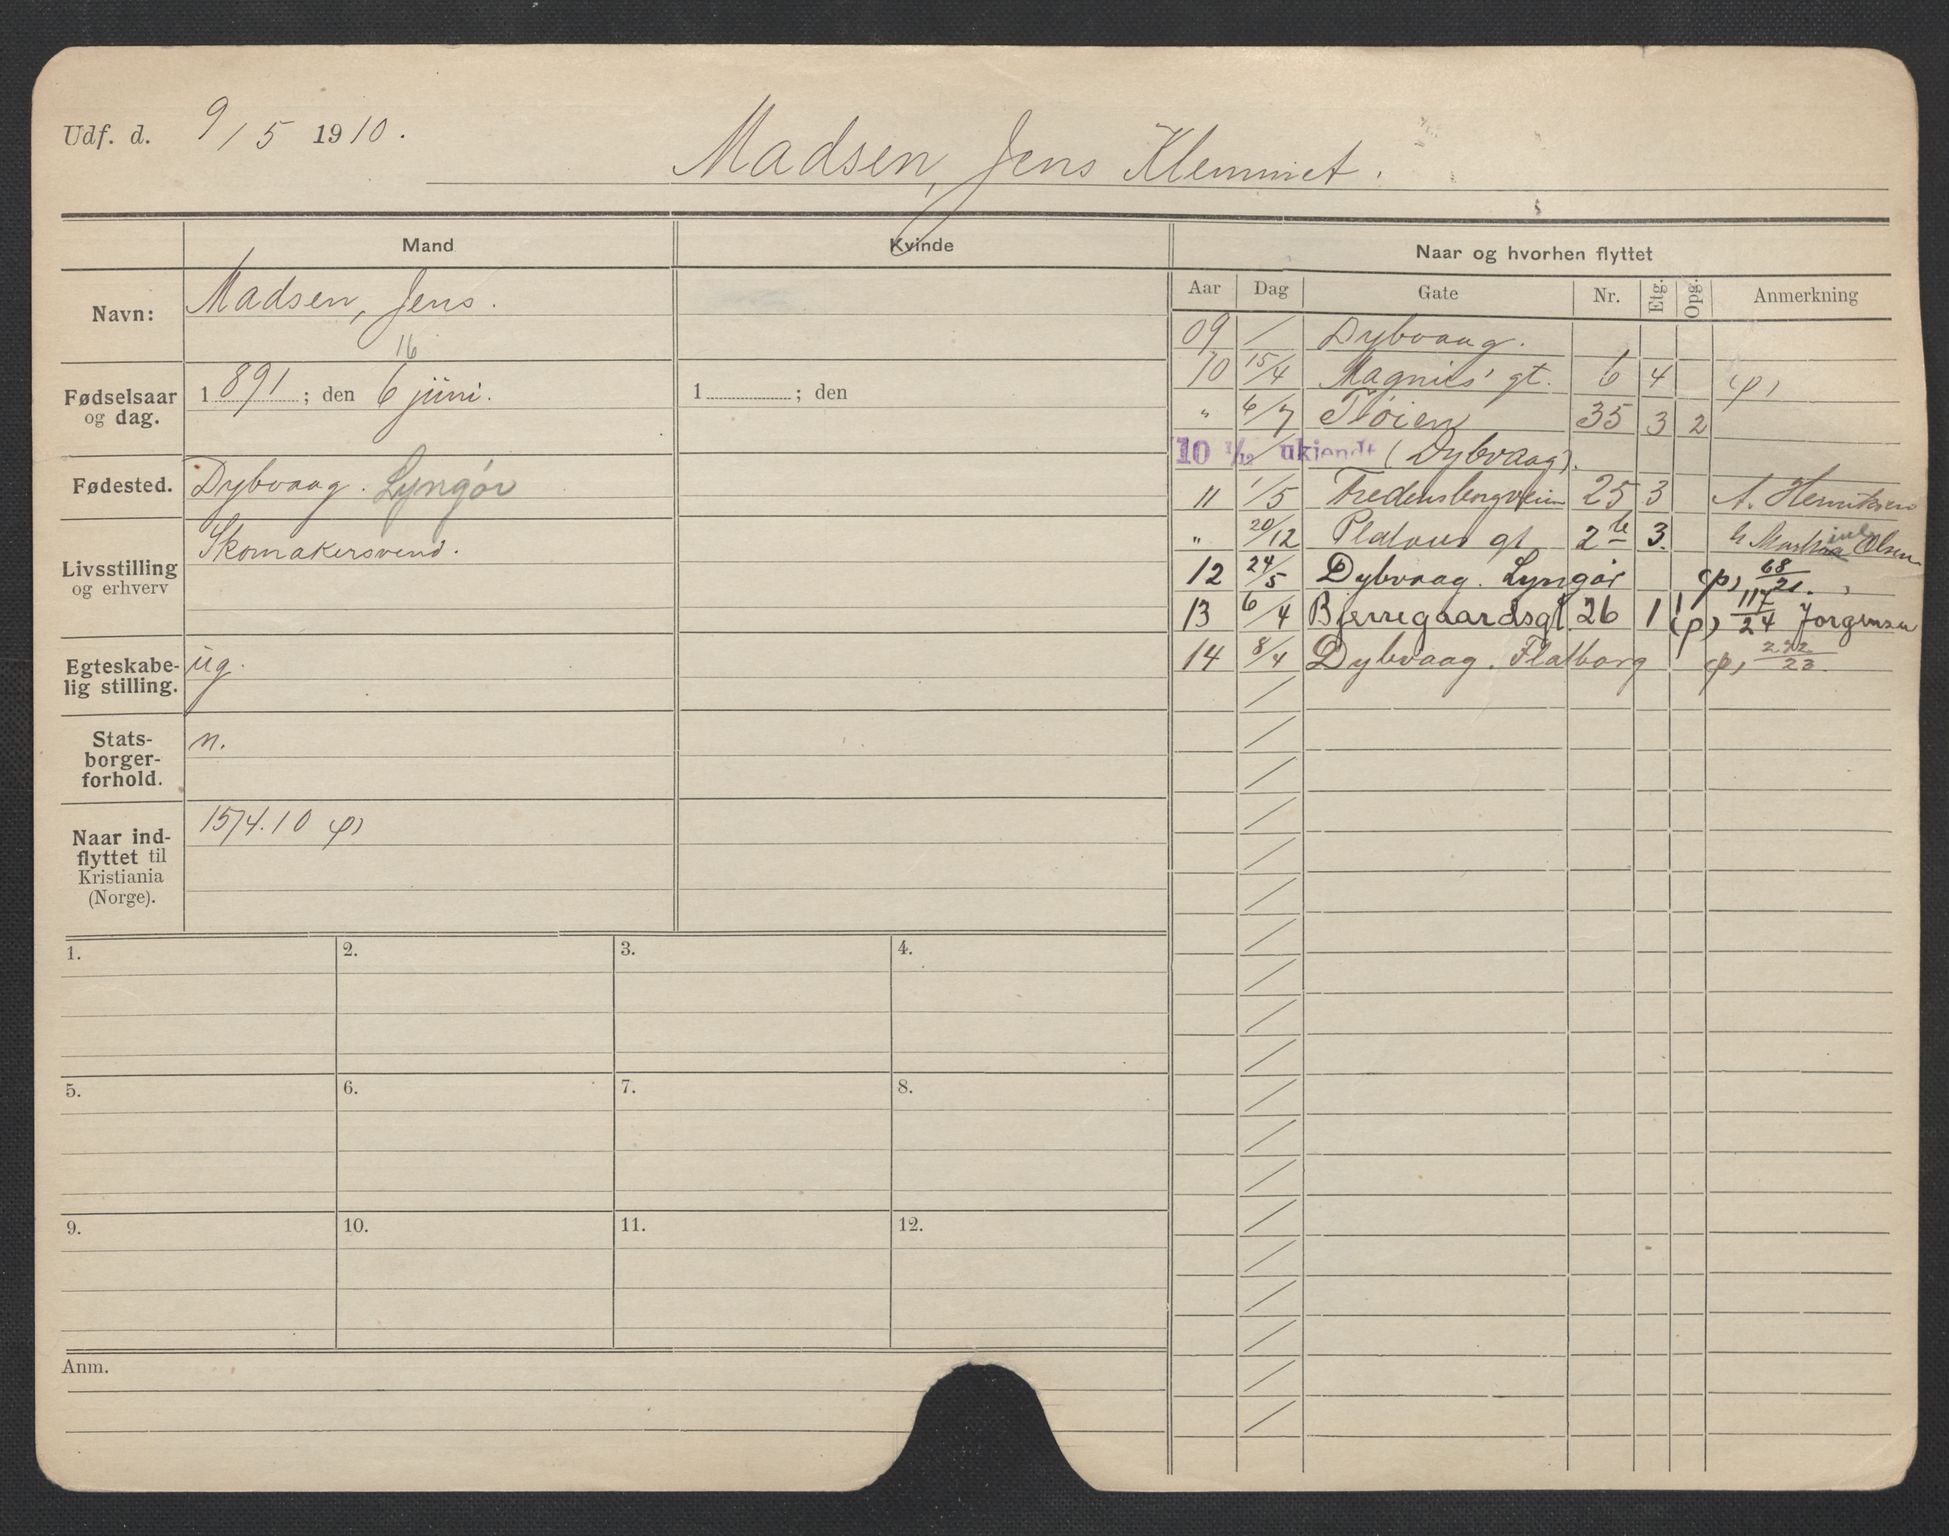 Udf. d. 9/5 1910.
Madsen, Jens Klemmet.
Mand
Kvinde
Naar og hvorhen flyttet
Navn:
Madsen, Jens.
Fødselsaar og dag.
16
1891; den 6 juni.
1 ; den
Fødested.
Dybvaag. Lyngør
Livsstilling og erhverv
Skomakersvend.
Egteskabe-
lig stilling.
ug.
Stats-
borger-
forhold.
n.
Naar ind-
flyttet til
Kristiania
(Norge).
15/4.10 (p)
1. 2. 3. 4.
5. 6. 7. 8.
9. 10. 11. 12.
Anm.
Aar Dag Gate Nr. Etg. Opg. Anmerkning
09 / Dybvaag.
10 15/4 Magnus' gt. 6 4 (p)
" 6/7 Tøien 35 3 2
10 1/12 ukjendt (Dybvaag).
11 1/5 Fredensborgveien 25 3 A. Henriksen
" 20/12 Platous gt 2b 3. Olsen
12 24/5 Dybvaag. Lyngør (p) 68/21.
13 6/4 Bjerregaardsgt. 26 1 1 (p) 117/24 Jorgensen
14 8/4 Dybvaag. Flatborg (p) 222/23.